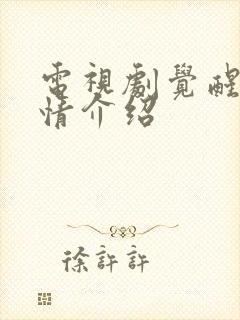 電視劇覺醒
情介紹
徐許許